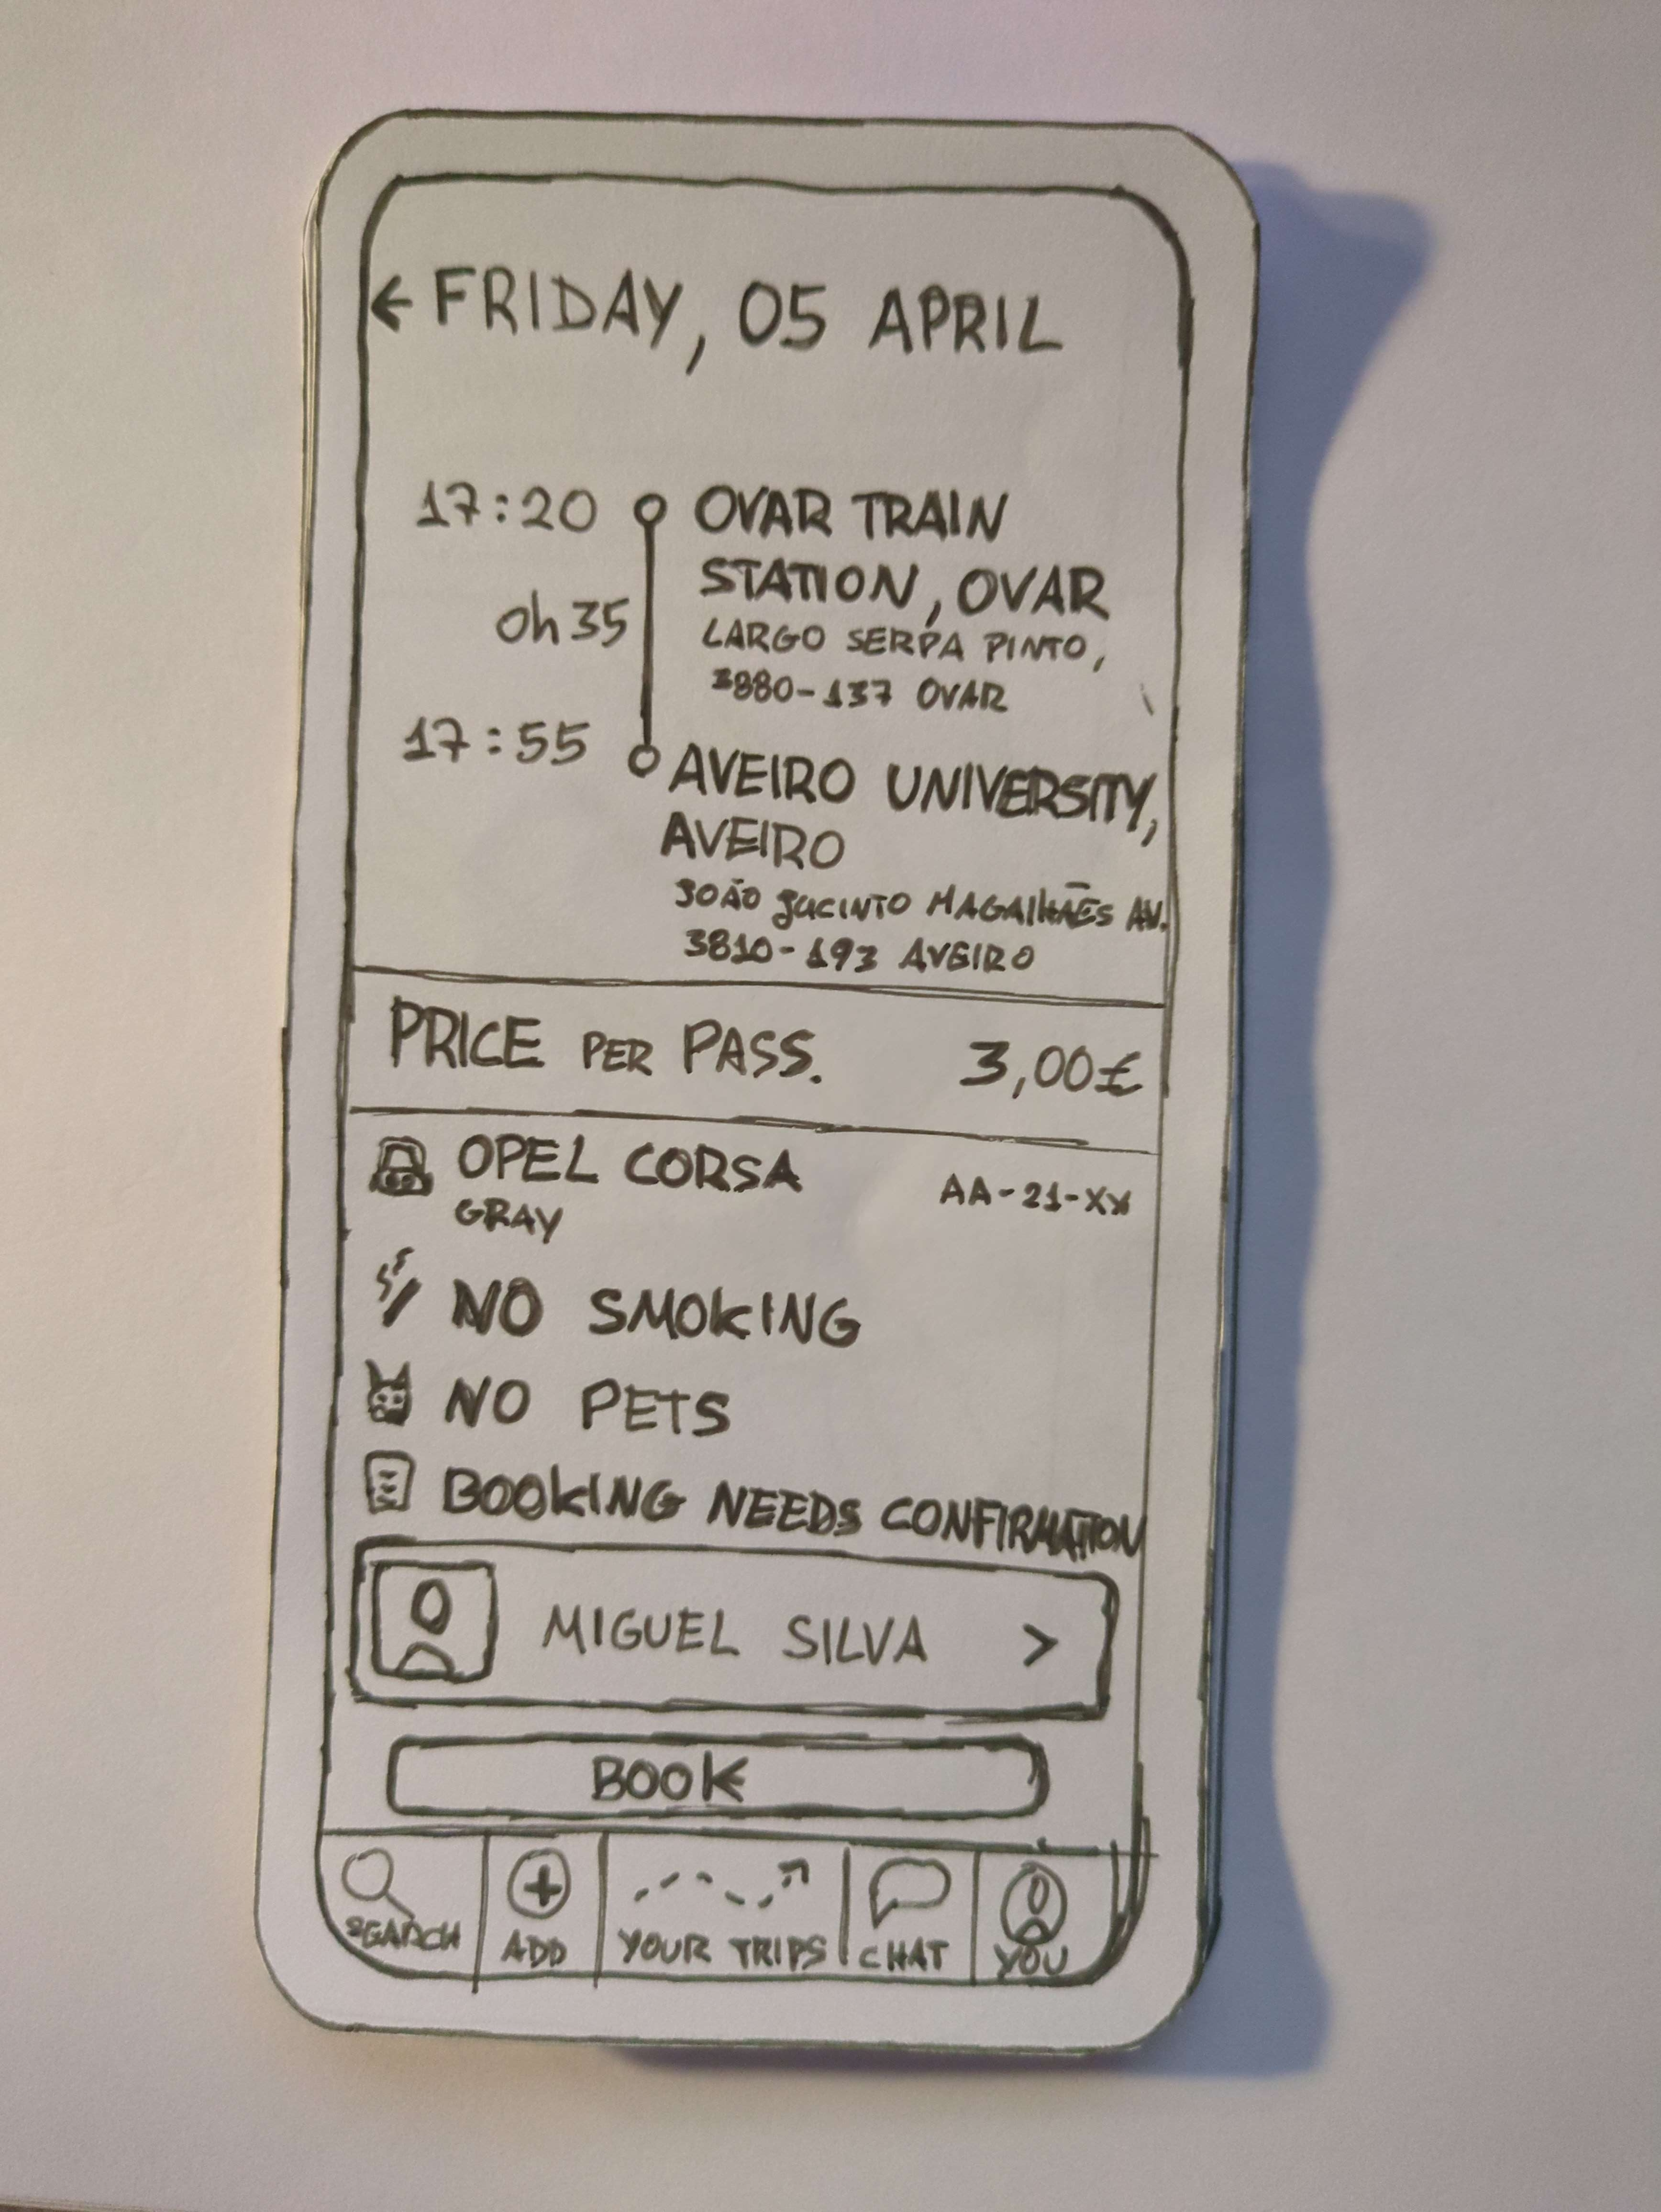 ← FRIDAY, 05 APRIL
17:20 OVAR TRAIN
STATION, OVAR
0h35
LARGO SERPA PINTO,
3880-137 OVAR
17:55 AVEIRO UNIVERSITY,
AVEIRO
JOÃO JACINTO MAGALHÃES AV.
3810-193 AVEIRO
PRICE PER PASS. 3,00£
OPEL CORSA AA-21-XX
GRAY
NO SMOKING
NO PETS
BOOKING NEEDS CONFIRMATION
MIGUEL SILVA >
BOOK
SEARCH ADD YOUR TRIPS CHAT YOU